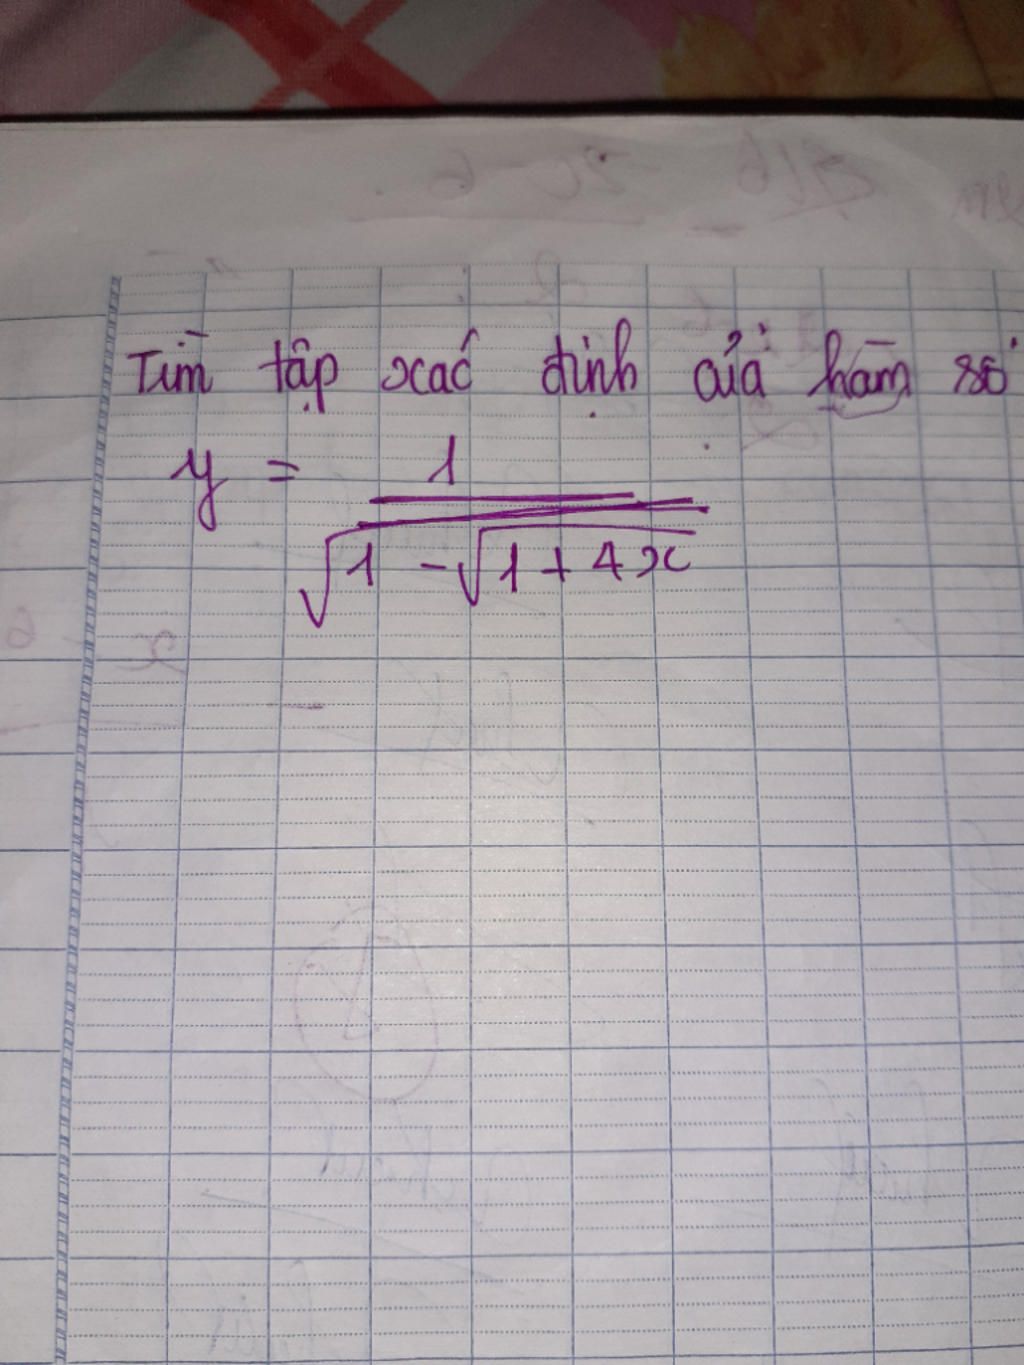 Tìm tập xác định của hàm số
y = 1
√1 - √1 + 4x